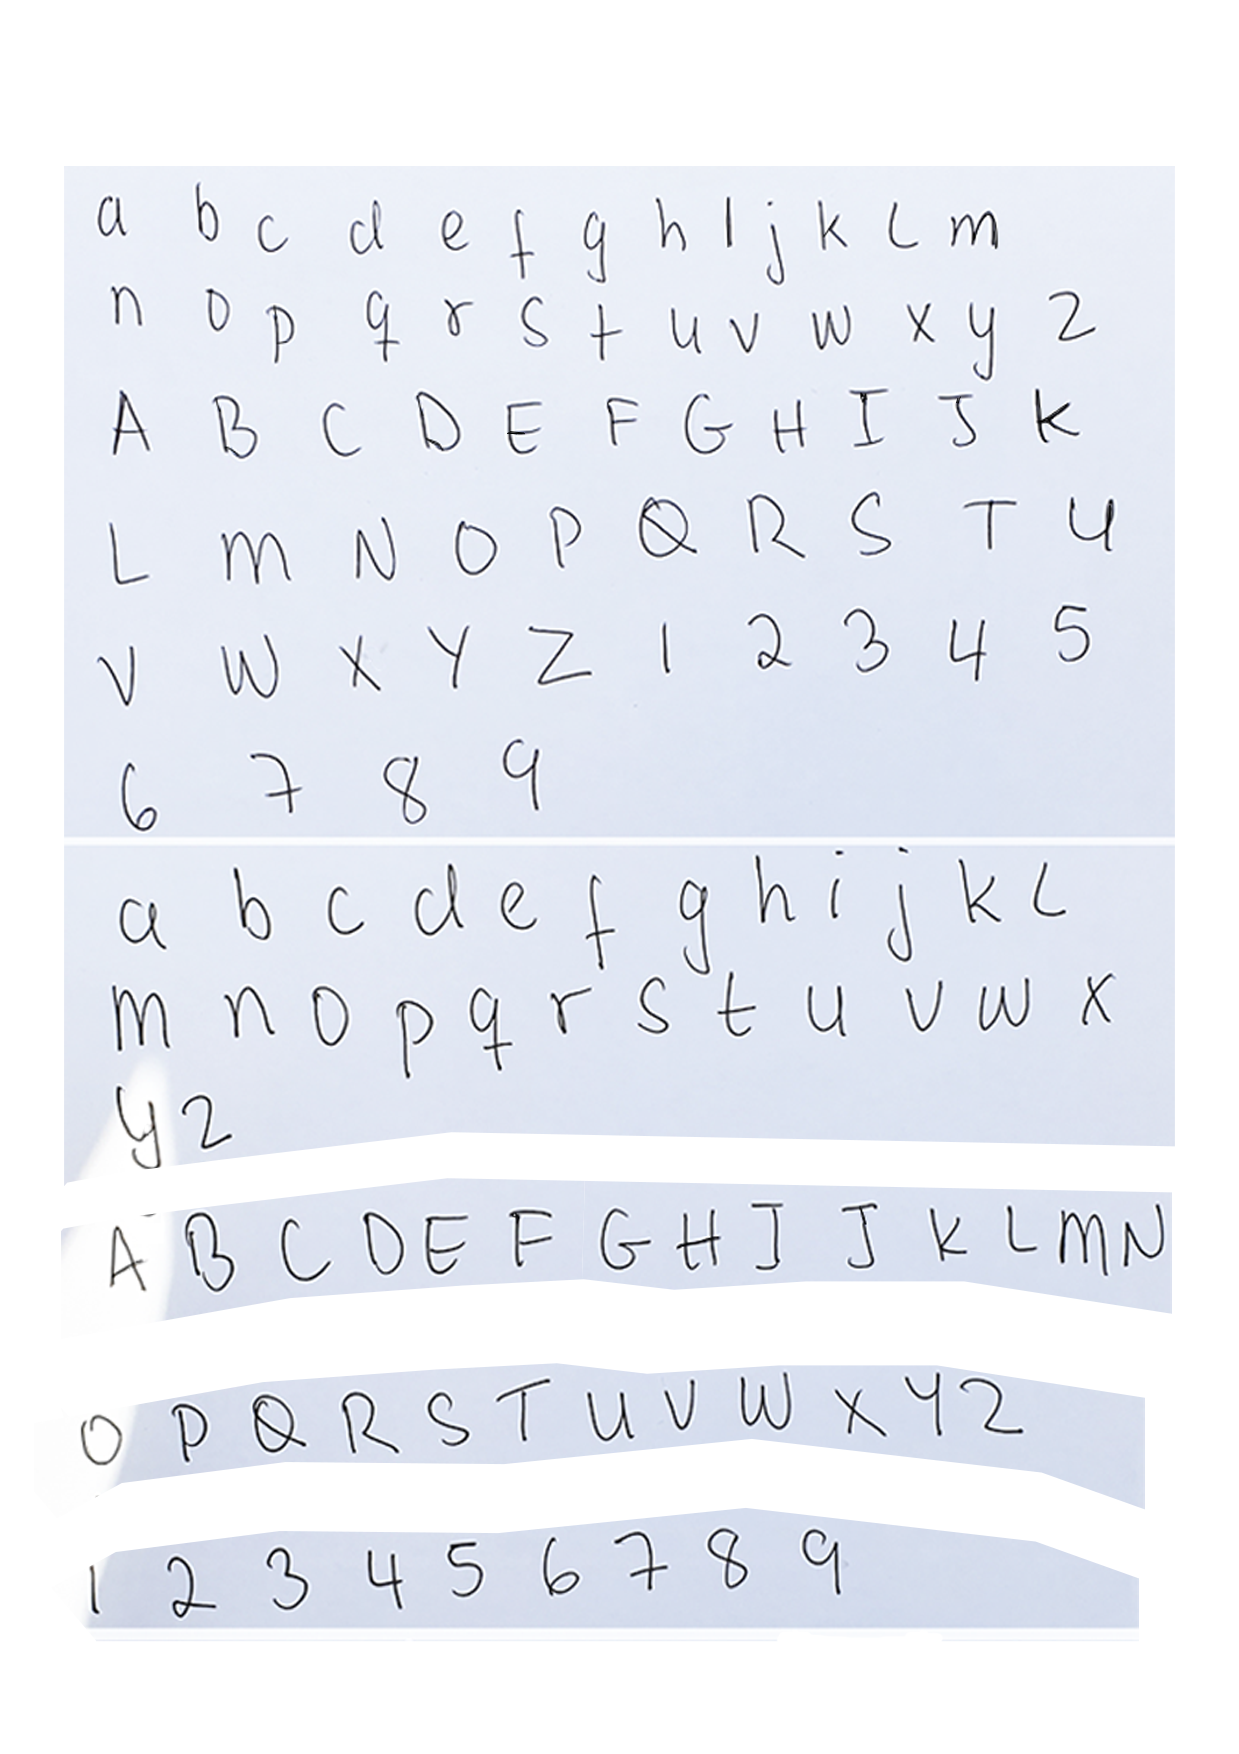 a b c d e f g h i j k l m
n o p q r s t u v w x y z
A B C D E F G H I J K
L M N O P Q R S T U
V W X Y Z 1 2 3 4 5
6 7 8 9
a b c d e f g h i j k l
m n o p q r s t u v w x
y z
A B C D E F G H I J K L M N
O P Q R S T U V W X Y Z
1 2 3 4 5 6 7 8 9